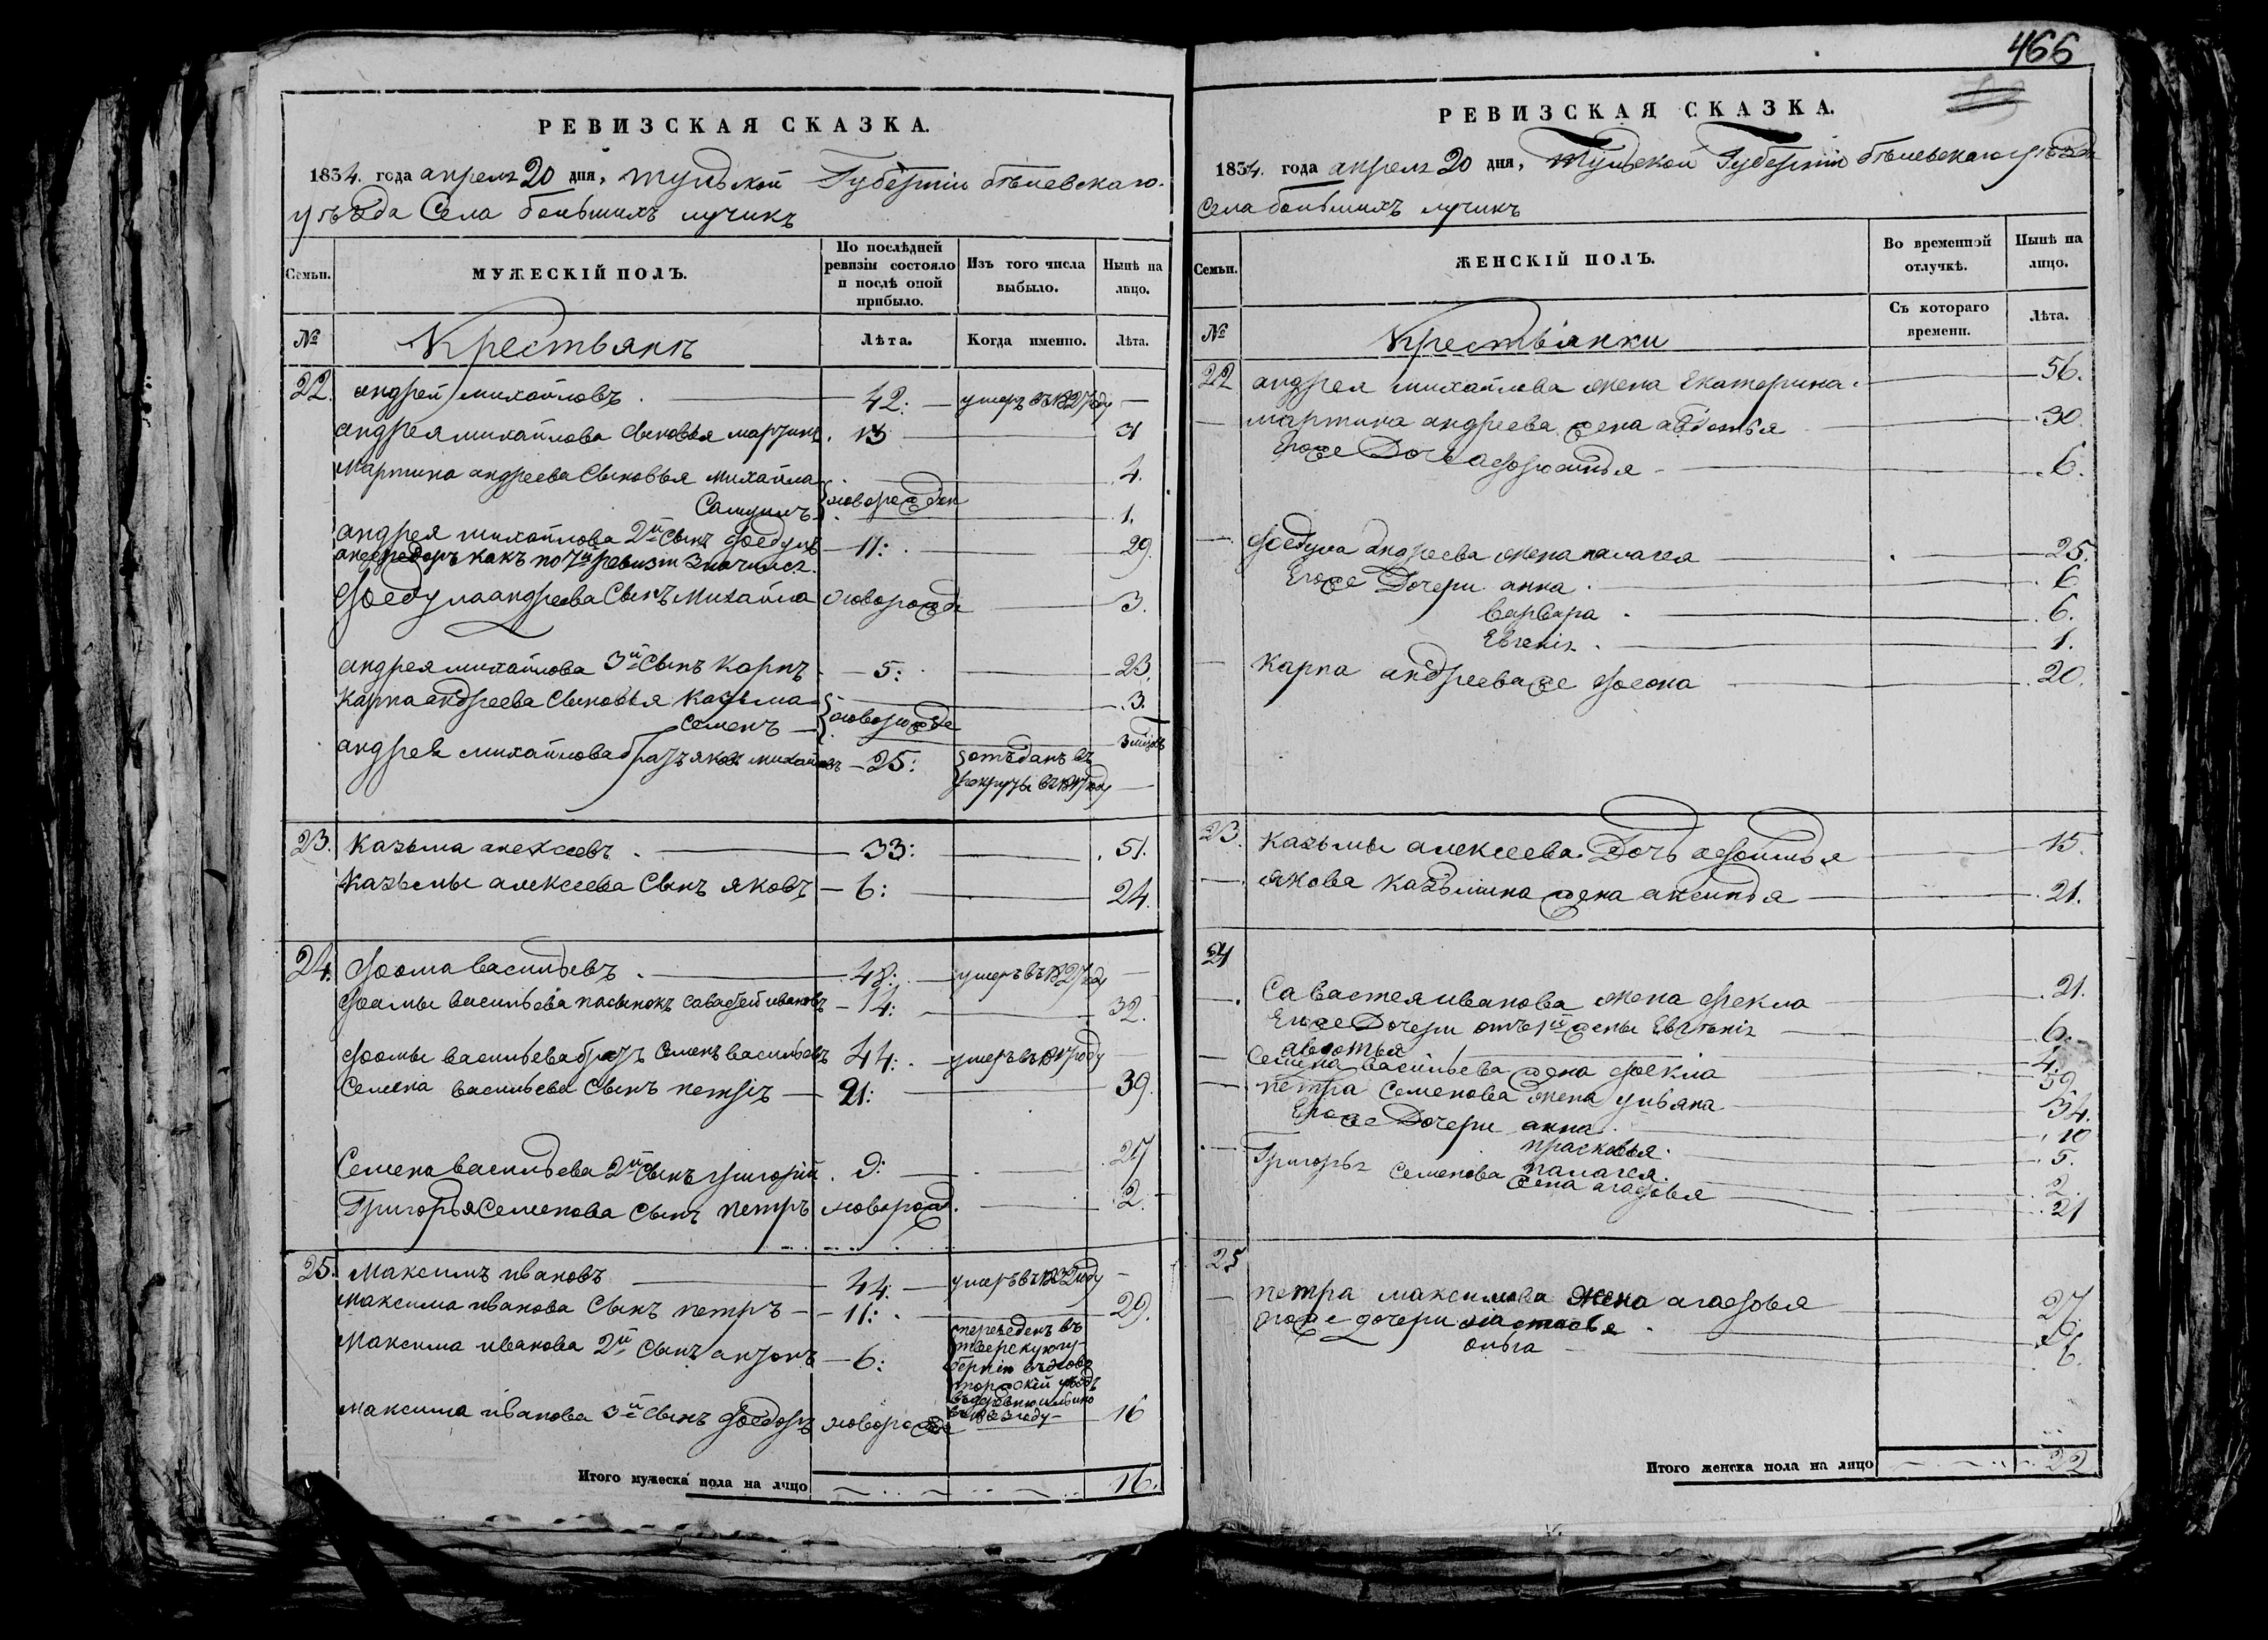 466
РЕВИЗСКАЯ СКАЗКА.
1834. года апреля 20 дня, тульской Губернiи бѣлевскаго
уѣзда Села большихъ лучикъ
Семьи. МУЖЕСКIЙ ПОЛЪ. По послѣдней ревизiи состояло и послѣ оной прибыло. Изъ того числа выбыло. Нынѣ на лицо.
№ Крестьянъ Лѣта. Когда именно. Лѣта.
22. андрей михайловъ 42: умеръ въ 1827 году
андрея михайлова сыновья мартинъ 13 31
Мартина андреева Сыновья михайла 4.
Самуилъ новорожден 1.
андрея михайлова 2й Сынъ фоедулъ 11: 29.
анефедоръ какъ по 7й ревизiи значился.
фоедула андреева Сынъ Михайла новорожде 3.
андрея михайлова 3й Сынъ Карпъ 5: 23.
Карпа андреева Сыновья Казьма 3.
Семенъ новорожде 3 месяцовъ
андрея михайлова братъ яковъ михайловъ 25: отъданъ въ
рекруты въ году
23. Казьма алексеевъ 33: 51.
Казьмы алексеева Сынъ яковъ 6: 24.
24. фоома васильевъ 48: умеръ въ 1827 году
фоомы васильева пасынокъ савастей ивановъ 14: 32.
фоомы васильева братъ Семенъ васильевъ 44: умеръ въ году
Семена васильева Сынъ петръ 21: 39.
Семена васильева 2й Сынъ григорiй 9: 27
Григорья Семенова Сынъ петръ новорожд. 2.
25. Максимъ ивановъ 44: умеръ въ 1832 году
Максима иванова Сынъ петръ 11: 29.
Максима иванова 2й Сынъ антонъ 6: переведенъ въ
тверскую гу-
бернiю въ ново
торжскiй уѣздъ
въ деревню
въ году
Максима иванова 3й Сынъ фоедоръ новорожде 16
Итого мужеска пола на лицо 16.
РЕВИЗСКАЯ СКАЗКА.
1834. года апреля 20 дня, Тульской Губернiи бѣлевскаго уѣзда
Села большихъ лучикъ
Семьи. ЖЕНСКIЙ ПОЛЪ. Во временной отлучкѣ. Нынѣ на лицо.
№ Крестьянки Съ котораго времени. Лѣта.
22 андрея михайлова жена Екатерина 56.
мартина андреева жена авдотья 30.
Егоже Дочь афросинья 6.
фоедула андреева жена палагея 25.
Егоже Дочери анна 6
варвара 6.
Евгенiя 1.
Карпа андреева же фоеона 20.
23. Казьмы алексеева Дочь афоимья 15.
якова Казьмина жена аксинья 21.
24
Савастея иванова жена фекла 21.
Егоже Дочери отъ 1й жены Евгенiя 6.
авдотья 4.
Семена васильева жена фоекла 59.
петра Семенова жена ульяна 34.
Егоже Дочери анна 10
прасковья 5.
палагея 2.
Григорья Семенова жена агафья 21
25
петра максимова жена агафовья 27.
Егоже дочери настасья
ольга 6.
Итого женска пола на лицо 22